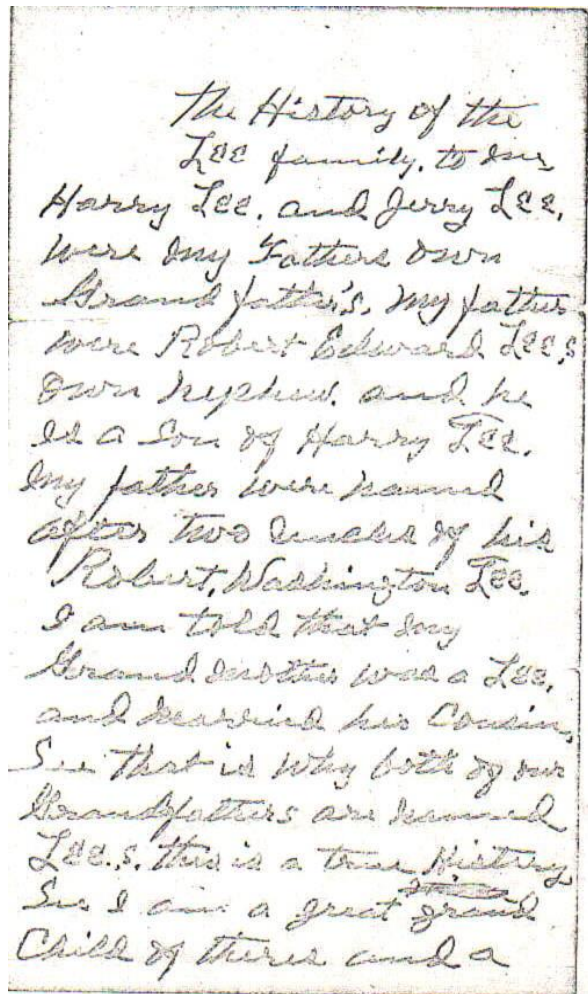 The History of the
Lee family. to me,
Harry Lee. and Jerry Lee.
were my Fathers own
Grand father's. My father
were Robert Edward Lee,s
own nephew. and he
is a son of Harry Lee.
my father were named
after two uncles of his
Robert, Washington Lee.
I am told that my
Grand mother was a Lee.
and married his Cousin,
See that is why both of our
Grandfathers are named
Lee.,s. this is a true History
See I am a great grand
Child of theres and a